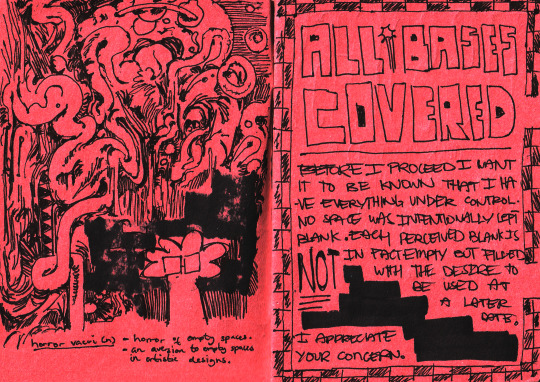 horror vacui (n) - horror of empty spaces.
- an aversion to empty spaces
in artistic designs.
ALL BASES
COVERED
BEFORE I PROCEED I WANT
IT TO BE KNOWN THAT I HA
-VE EVERYTHING UNDER CONTROL.
NO SPACE WAS INTENTIONALLY LEFT
BLANK. EACH PERCEIVED BLANK IS
NOT IN FACT EMPTY BUT FILLED
WITH THE DESIRE TO
BE USED AT
A LATER
DATE.
I APPRECIATE
YOUR CONCERN.